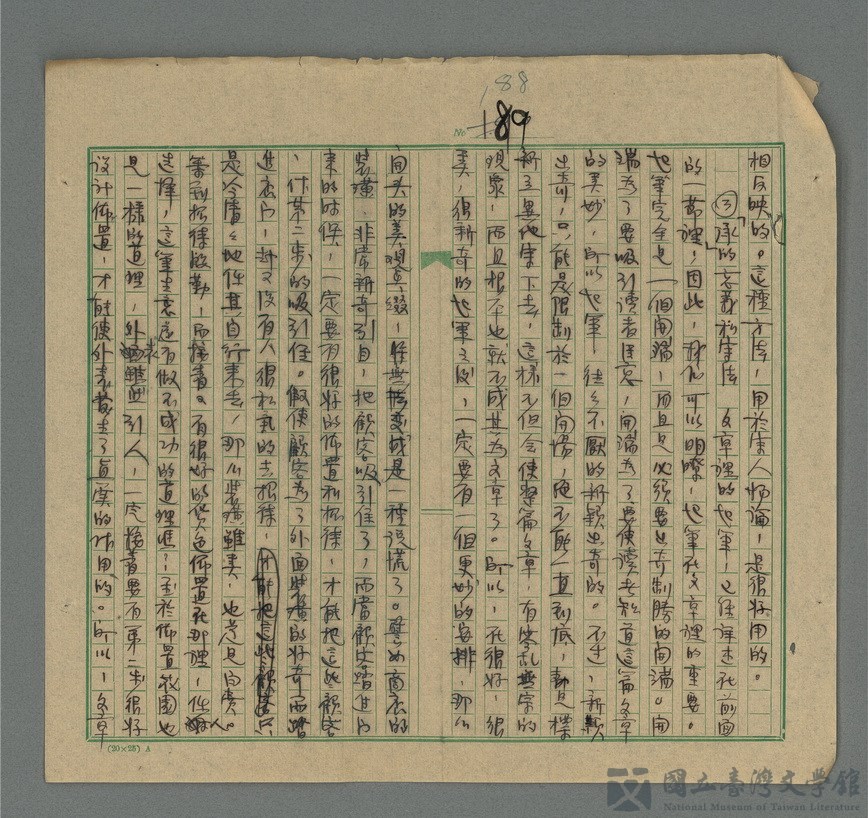 188
No 89
相反映的。這種方法，用於築人物論，是很好用的。
③「承」的意義和寫法 文章裡的起筆，已經詳述在前面
的一節裡，因此，我們可以明瞭，起筆在文章裡的重要。
起筆完全是一個開端，而且是必須要出奇制勝的開端。開
端為了要吸引讀者注意，開端為了要使讀者知道這篇文章
的美妙，所以起筆，往々不厭的新穎出奇的。不過，新穎
出奇，只能是限制於一個開場，絕不能一直到底，都是標
新立異地寫下去，這樣不但會使整篇文章，有零亂無章的
現象，而且根本也就不成其為文章了。所以，在很好，很
美，很新奇的起筆之後，一定要有一個更妙的安排，那么
開头的美观點綴，便無形變成是一種說謊了。譬如商店的
裝璜，非常新奇引目，把顧客吸引住了，而當顧客踏進門
來的時候，一定要有很好的佈置和招待，才能把這些顧客
，作第二步的吸引住。假使顧客為了外面裝璜的好奇而踏
進店門，却又沒有人很和氣的去招待，才能把這些顧客只
是冷清々地任其自行來去，那么裝璜雖美，也算是白費。
等到招待殷勤，而接着又有很好的貨色佈置在那裡，任人
选擇，這筆生意還有做不成功的道理嗎？至於佈置花園也
是一樣的道理，外表雖美引人，一定接着要有第二步很好
設計佈置，才能使外表發生了真實的作用的。所以，文章
(20×25) A
國立臺灣文學館
National Museum of Taiwan Literature